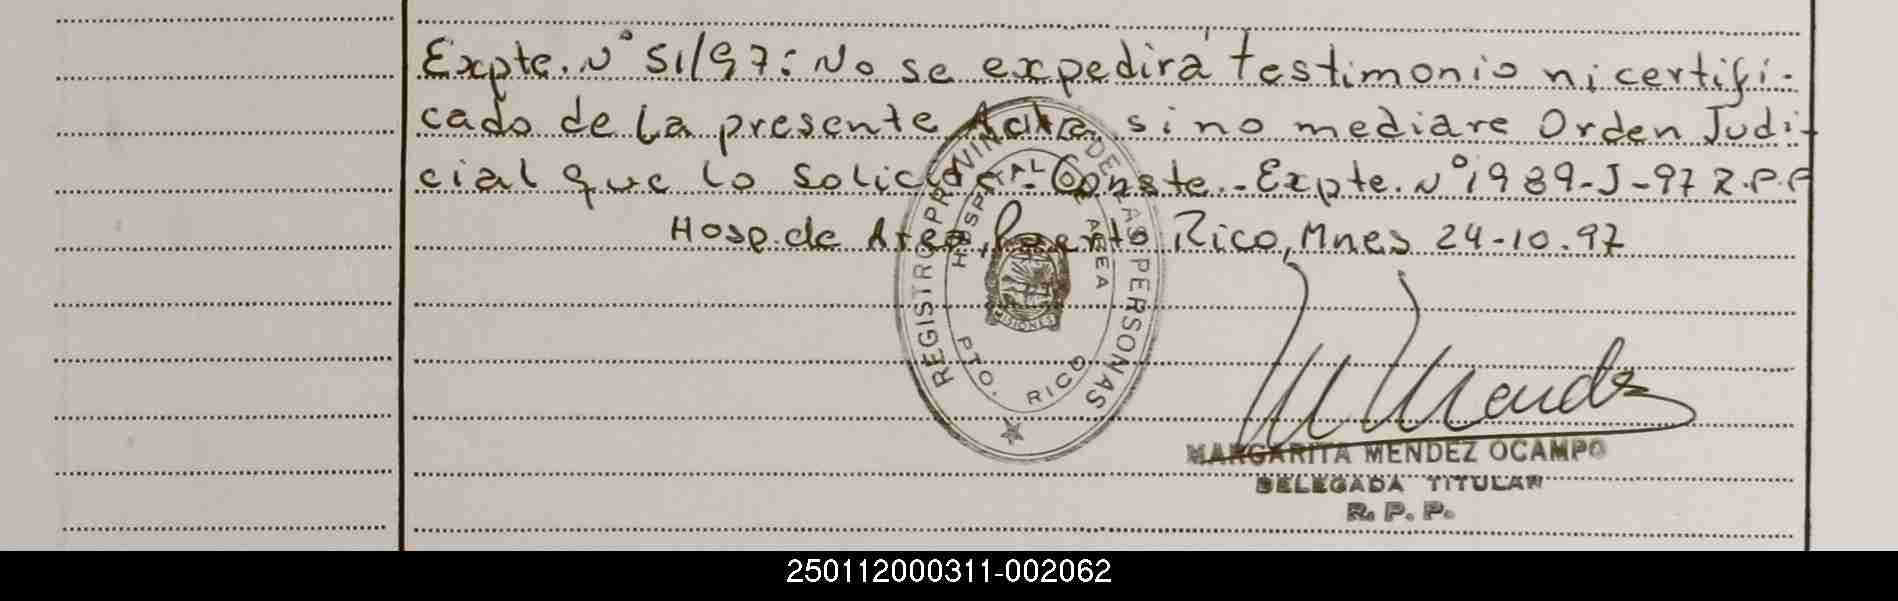 Expte. N° 51/97: No se expedirá testimonio ni certifi-
cado de la presente Acta, si no mediare Orden Judi-
cial que lo solicite.- Conste.- Expte. N° 1989-J-97 R.P.P
Hosp. de Area, Puerto Rico, Mnes 24-10.97
REGISTRO PROVINCIAL DE LAS PERSONAS
HOSPITAL DE AREA
MISIONES
PTO. RICO
M Mendez
MARGARITA MENDEZ OCAMPO
DELEGADA TITULAR
R. P. P.
250112000311-002062